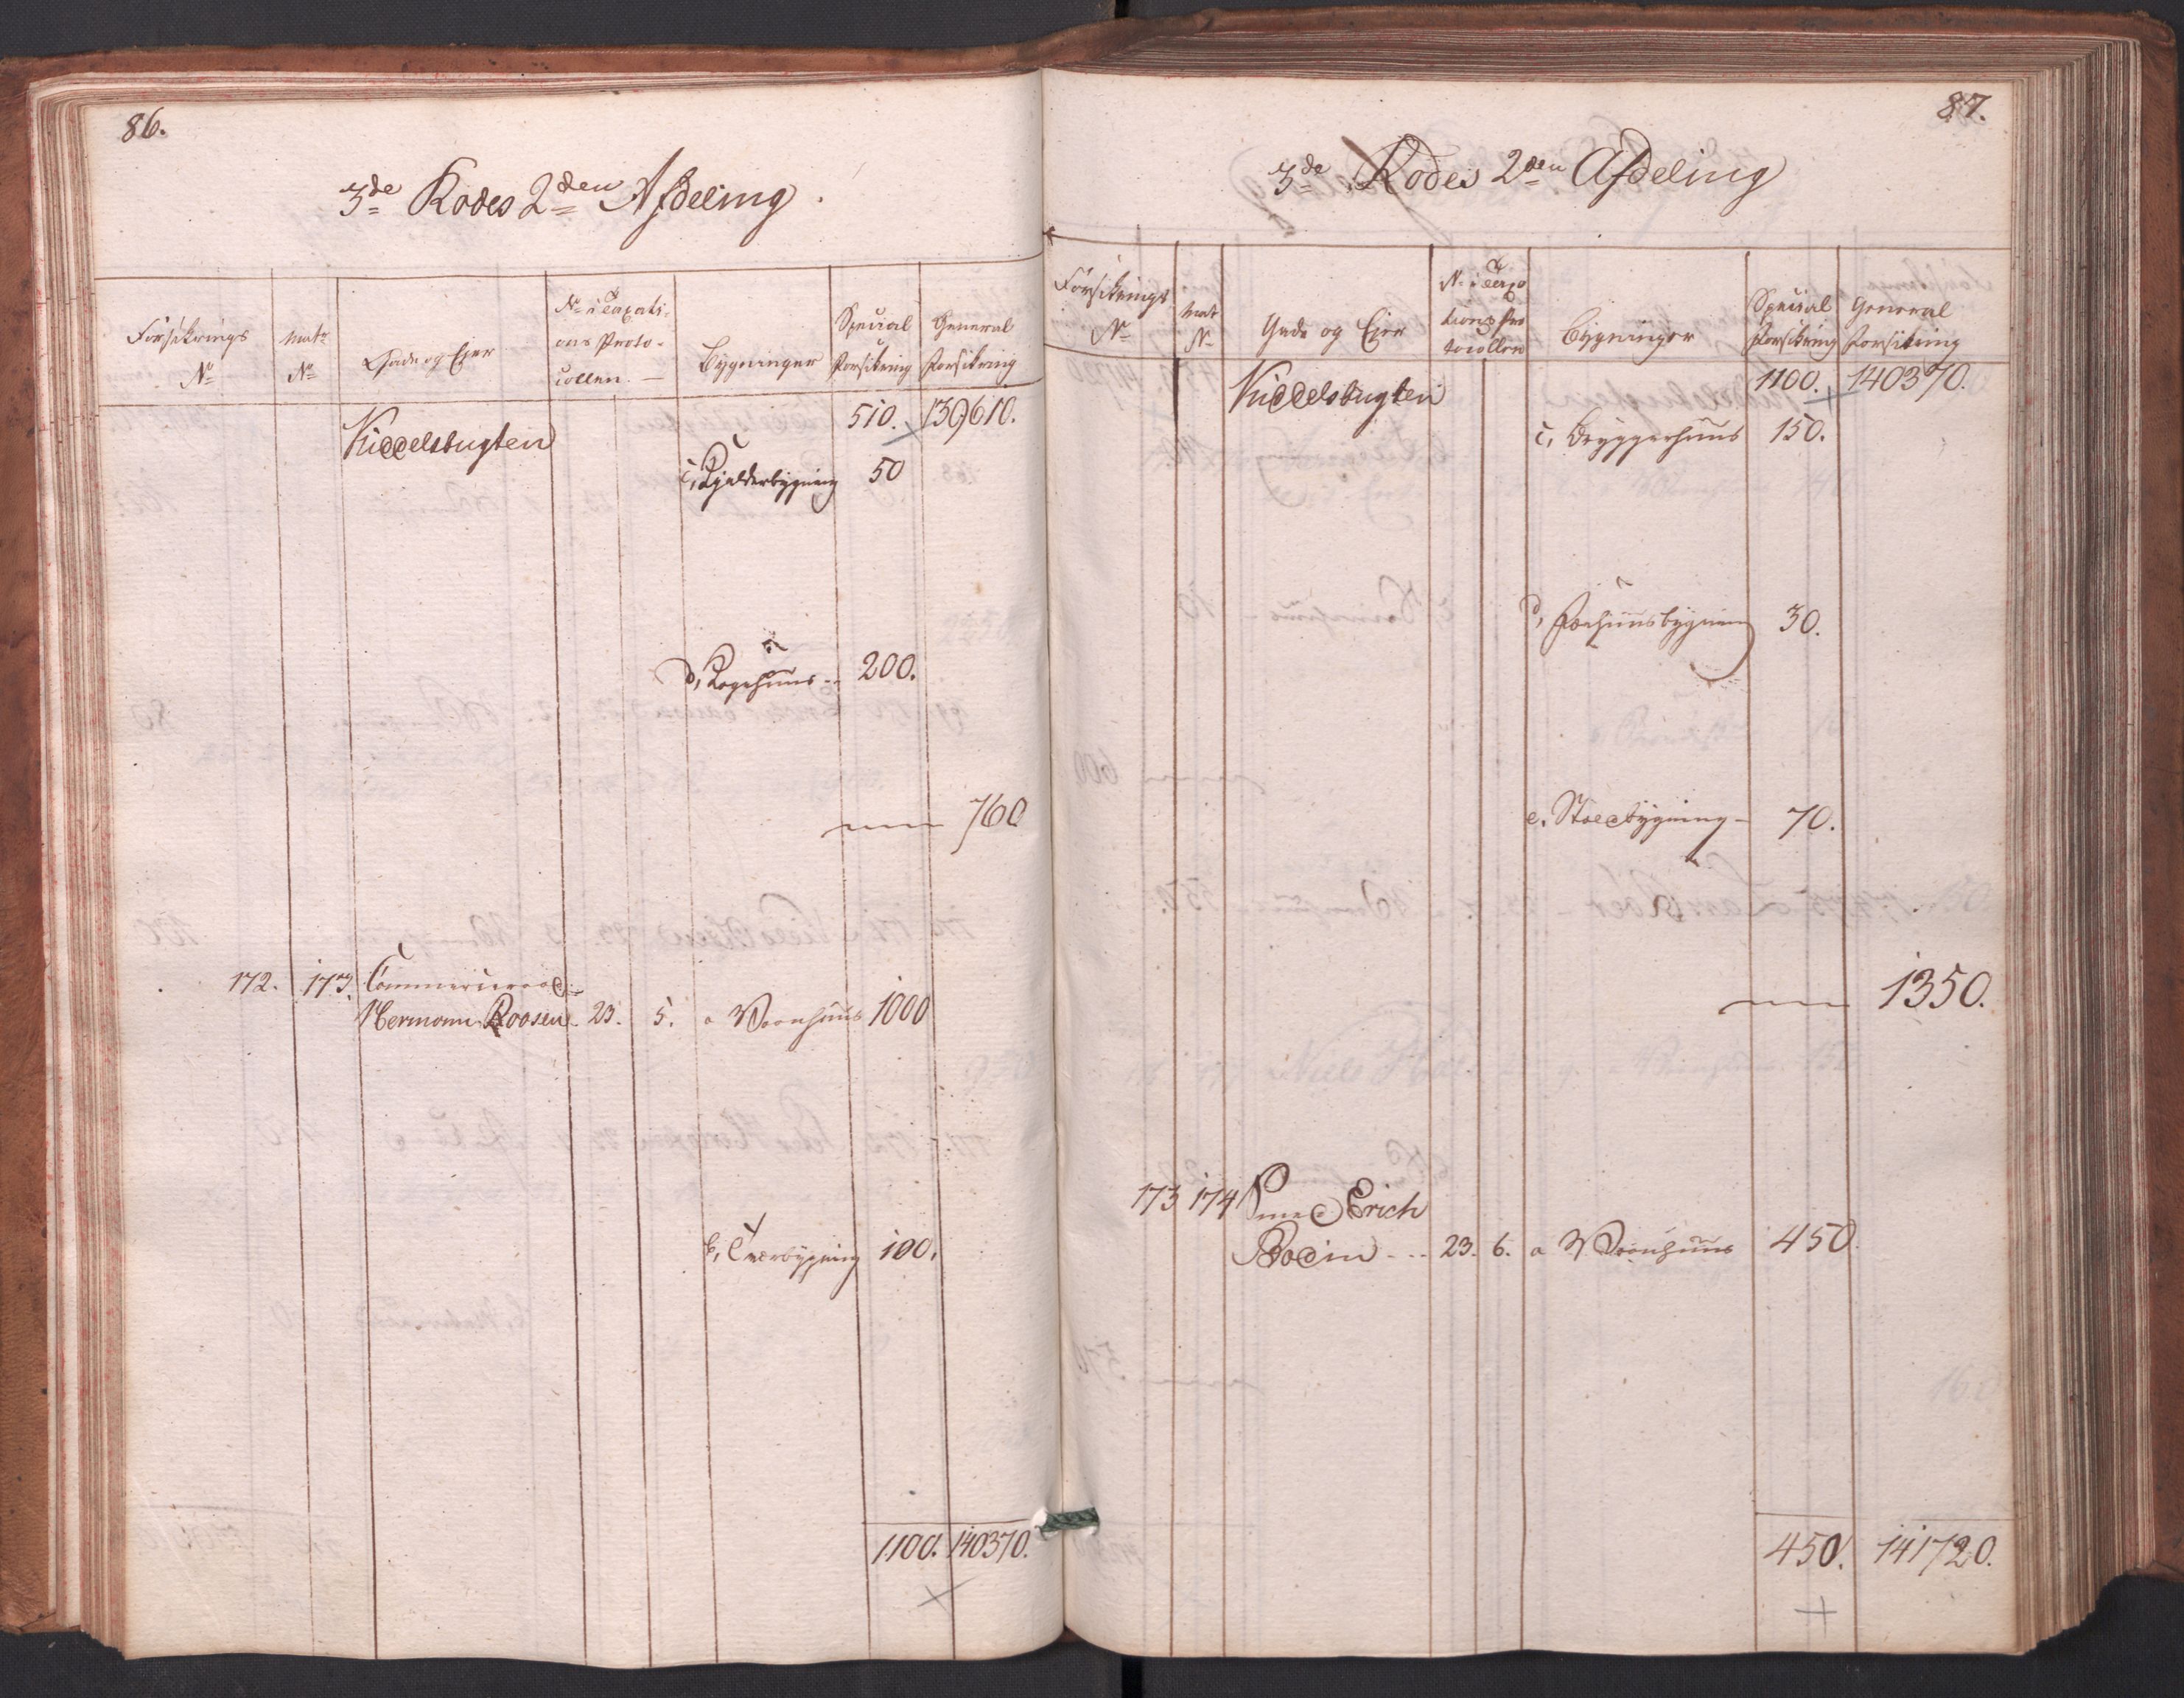 86.
3de Rodes 2den Afdeling.
Forsikrings No
Matr No
Gade og Eier
No i Taxati-
ons Proto-
collen.
Bygninger
Special Forsikring
General Forsikring
Kiddelsbugten
510. 139610.
c, Kjelderbygning 50
d, Kogehuus 200.
760
172. 173. Commerceraad
Hermann Roosen 23. 5. a Vaanhuus 1000
b, Tværbygning 100.
1100. 140370.
87.
3de Rodes 2den Afdeling
Forsikrings No
Mat No
Gade og Eier
No i Taxa
tions Pro
tocollen
Bygninger
Special Forsikring
General Forsikring
Kiddelsbugten 1100. 140370.
c, Bryggerhuus 150.
d, Fæehuusbygning 30.
e. Staldbygning 70.
1350.
173 174 Smed Erich
Bodin 23. 6. a Vaanhuus 450
450. 141720.